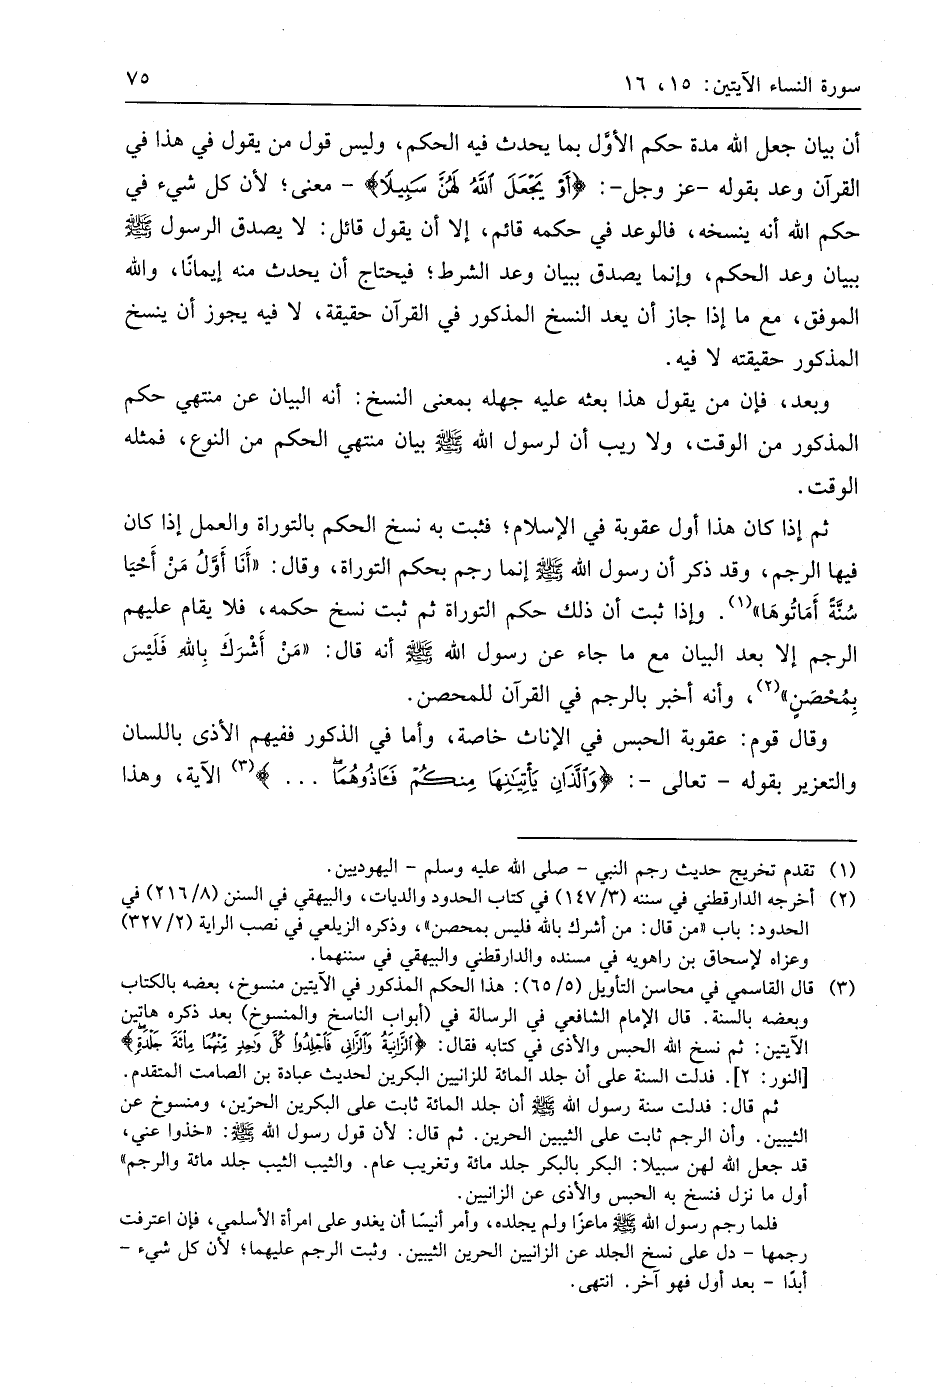 سورة النساء الآيتين: ١٥، ١٦ ٧٥
أن بيان جعل الله مدة حكم الأوَّل بما يحدث فيه الحكم، وليس قول من يقول في هذا في
القرآن وعد بقوله -عز وجل-: ﴿أَوْ يَجْعَلَ ٱللَّهُ لَهُنَّ سَبِيلًا﴾ - معنى؛ لأن كل شيء في
حكم الله أنه ينسخه، فالوعد في حكمه قائم، إلا أن يقول قائل: لا يصدق الرسول ﷺ
ببيان وعد الحكم، وإنما يصدق ببيان وعد الشرط؛ فيحتاج أن يحدث منه إيمانًا، والله
الموفق، مع ما إذا جاز أن يعد النسخ المذكور في القرآن حقيقة، لا فيه يجوز أن ينسخ
المذكور حقيقته لا فيه.
وبعد، فإن من يقول هذا بعثه عليه جهله بمعنى النسخ: أنه البيان عن منتهي حكم
المذكور من الوقت، ولا ريب أن لرسول الله ﷺ بيان منتهي الحكم من النوع، فمثله
الوقت.
ثم إذا كان هذا أول عقوبة في الإسلام؛ فثبت به نسخ الحكم بالتوراة والعمل إذا كان
فيها الرجم، وقد ذكر أن رسول الله ﷺ إنما رجم بحكم التوراة، وقال: «أَنَا أَوَّلُ مَنْ أَحْيَا
سُنَّةً أَمَاتُوهَا»(١). وإذا ثبت أن ذلك حكم التوراة ثم ثبت نسخ حكمه، فلا يقام عليهم
الرجم إلا بعد البيان مع ما جاء عن رسول الله ﷺ أنه قال: «مَنْ أَشْرَكَ بِاللهِ فَلَيْسَ
بِمُحْصَنٍ»(٢)، وأنه أخبر بالرجم في القرآن للمحصن.
وقال قوم: عقوبة الحبس في الإناث خاصة، وأما في الذكور ففيهم الأذى باللسان
والتعزير بقوله - تعالى -: ﴿وَٱلَّذَانِ يَأْتِيَٰنِهَا مِنكُمْ فَـَٔاذُوهُمَا ... ﴾(٣) الآية، وهذا
(١) تقدم تخريج حديث رجم النبي - صلى الله عليه وسلم - اليهوديين.
(٢) أخرجه الدارقطني في سننه (١٤٧/٣) في كتاب الحدود والديات، والبيهقي في السنن (٢١٦/٨) في
الحدود: باب «من قال: من أشرك بالله فليس بمحصن»، وذكره الزيلعي في نصب الراية (٣٢٧/٢)
وعزاه لإسحاق بن راهويه في مسنده والدارقطني والبيهقي في سننهما.
(٣) قال القاسمي في محاسن التأويل (٦٥/٥): هذا الحكم المذكور في الآيتين منسوخ، بعضه بالكتاب
وبعضه بالسنة. قال الإمام الشافعي في الرسالة في (أبواب الناسخ والمنسوخ) بعد ذكره هاتين
الآيتين: ثم نسخ الله الحبس والأذى في كتابه فقال: ﴿ٱلزَّانِيَةُ وَٱلزَّانِى فَٱجْلِدُوا۟ كُلَّ وَٰحِدٍ مِّنْهُمَا مِا۟ئَةَ جَلْدَةٍ﴾
[النور: ٢]. فدلت السنة على أن جلد المائة للزانيين البكرين لحديث عبادة بن الصامت المتقدم.
ثم قال: فدلت سنة رسول الله ﷺ أن جلد المائة ثابت على البكرين الحرّين، ومنسوخ عن
الثيبين. وأن الرجم ثابت على الثيبين الحرين. ثم قال: لأن قول رسول الله ﷺ: «خذوا عني،
قد جعل الله لهن سبيلا: البكر بالبكر جلد مائة وتغريب عام. والثيب الثيب جلد مائة والرجم»
أول ما نزل فنسخ به الحبس والأذى عن الزانيين.
فلما رجم رسول الله ﷺ ماعزًا ولم يجلده، وأمر أنيسًا أن يغدو على امرأة الأسلمي، فإن اعترفت
رجمها - دل على نسخ الجلد عن الزانيين الحرين الثيبين. وثبت الرجم عليهما؛ لأن كل شيء -
أبدًا - بعد أول فهو آخر. انتهى.